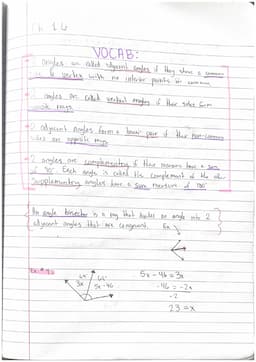 Ch 1.6
VOCAB:
angles are called adjacent angles if they share a common
& vertex with no interior points in common
2 angles are called vertical angles if their sides form
opposite rays.
2 adjacent angles form a linear pair if their non-common
sides are opposite rays
2 angles are complementary if their measures have a sum
of 90°. Each angle is called the complement of the other
Supplementary angles have a sum measure of 180°
An angle bisector is a ray that divides an angle into 2
adjacent angles that are congruent. Ex
3x
5x-46
5x - 46 = 3x
-46 = -2x
-2
23 = x